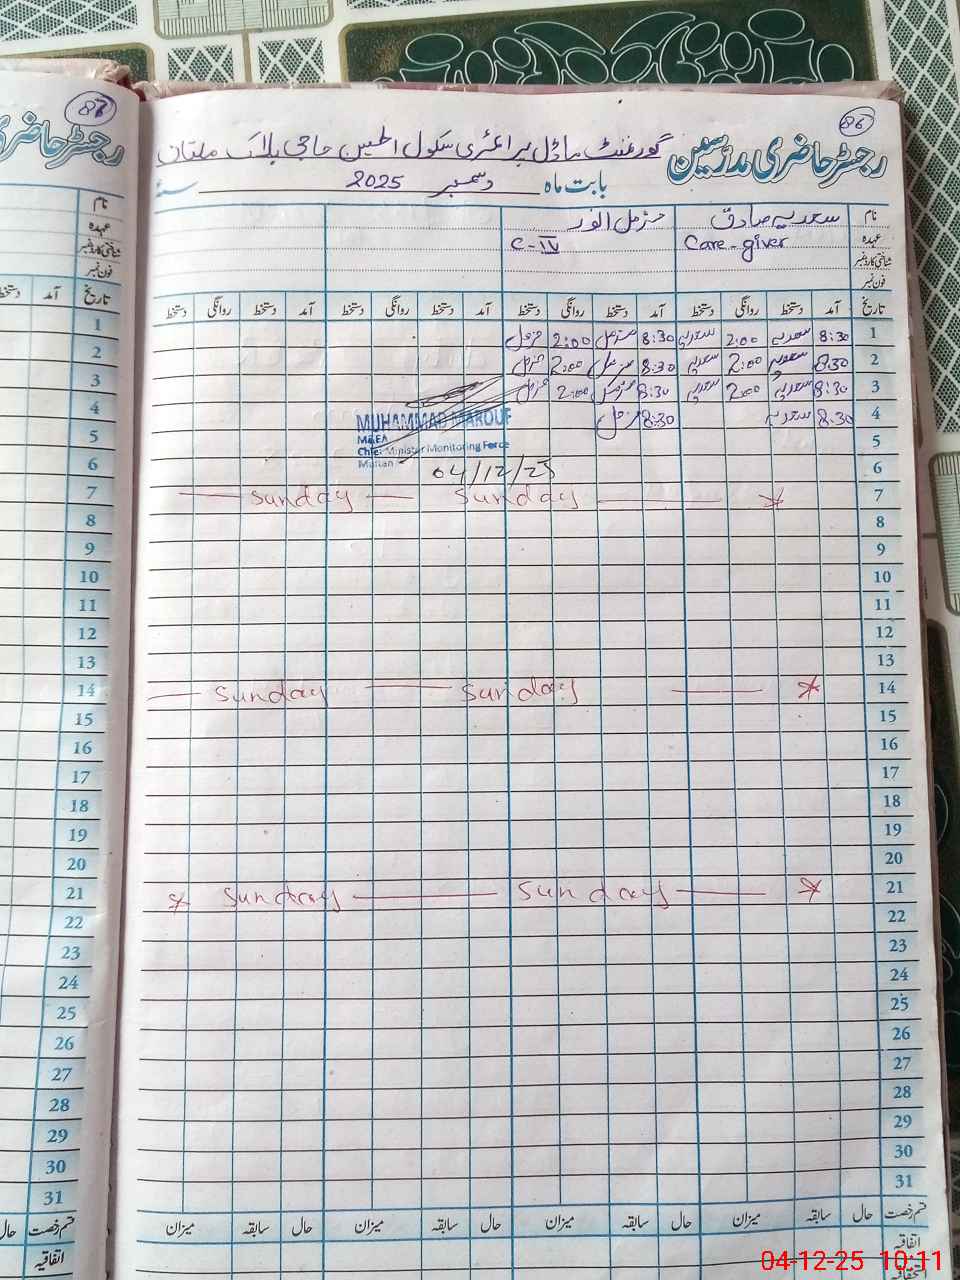 87
86
رجسٹر حاضری مدرسین
گورنمنٹ ماڈل پرائمری سکول الحسین حاجی بلاک ملتان
بابت ماہ دسمبر 2025 سنہ
نام سعدیہ صادق مزمل انور
عہدہ Care-giver C-IV
شناختی کارڈ نمبر
فون نمبر
تاریخ آمد دستخط روانگی دستخط آمد دستخط روانگی دستخط آمد دستخط روانگی دستخط آمد دستخط روانگی دستخط
1 8:30 سعدیہ 2:00 سعدیہ 8:30 مزمل 2:00 مزمل
2 8:30 سعدیہ 2:00 سعدیہ 8:30 مزمل 2:00 مزمل
3 8:30 سعدیہ 2:00 سعدیہ 8:30 مزمل 2:00 مزمل
4 8:30 سعدیہ 8:30 مزمل
MUHAMMAD MAROUF
MEA
Chief Minister Monitoring Force
Multan
04/12/25
5
6
7 Sunday Sunday
8
9
10
11
12
13
14 Sunday Sunday
15
16
17
18
19
20
21 Sunday Sunday
22
23
24
25
26
27
28
29
30
31
قسم رخصت حال سابقہ میزان حال سابقہ میزان حال سابقہ میزان حال سابقہ میزان
اتفاقیہ
استحقاقیہ
رجسٹر حاضری
نام
عہدہ
شناختی کارڈ نمبر
فون نمبر
تاریخ آمد دستخط
1
2
3
4
5
6
7
8
9
10
11
12
13
14
15
16
17
18
19
20
21
22
23
24
25
26
27
28
29
30
31
قسم رخصت حال
اتفاقیہ
04-12-25 10:11